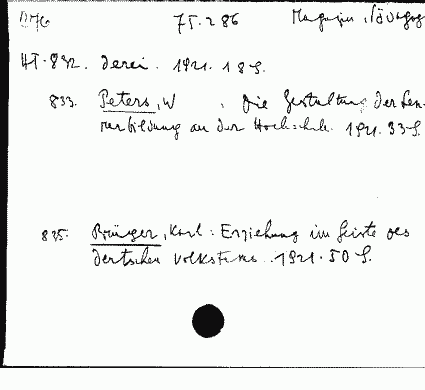 75.286 Magazin
HT-832. Derei. 1921. 18 S.
833. Peters, W. Die Gestaltung der Leh-
rerbildung an der Hochschule. 1921. 33 S.
835. Brünger, Karl: Erziehung im Geiste des
deutschen Volkstums. 1921. 50 S.